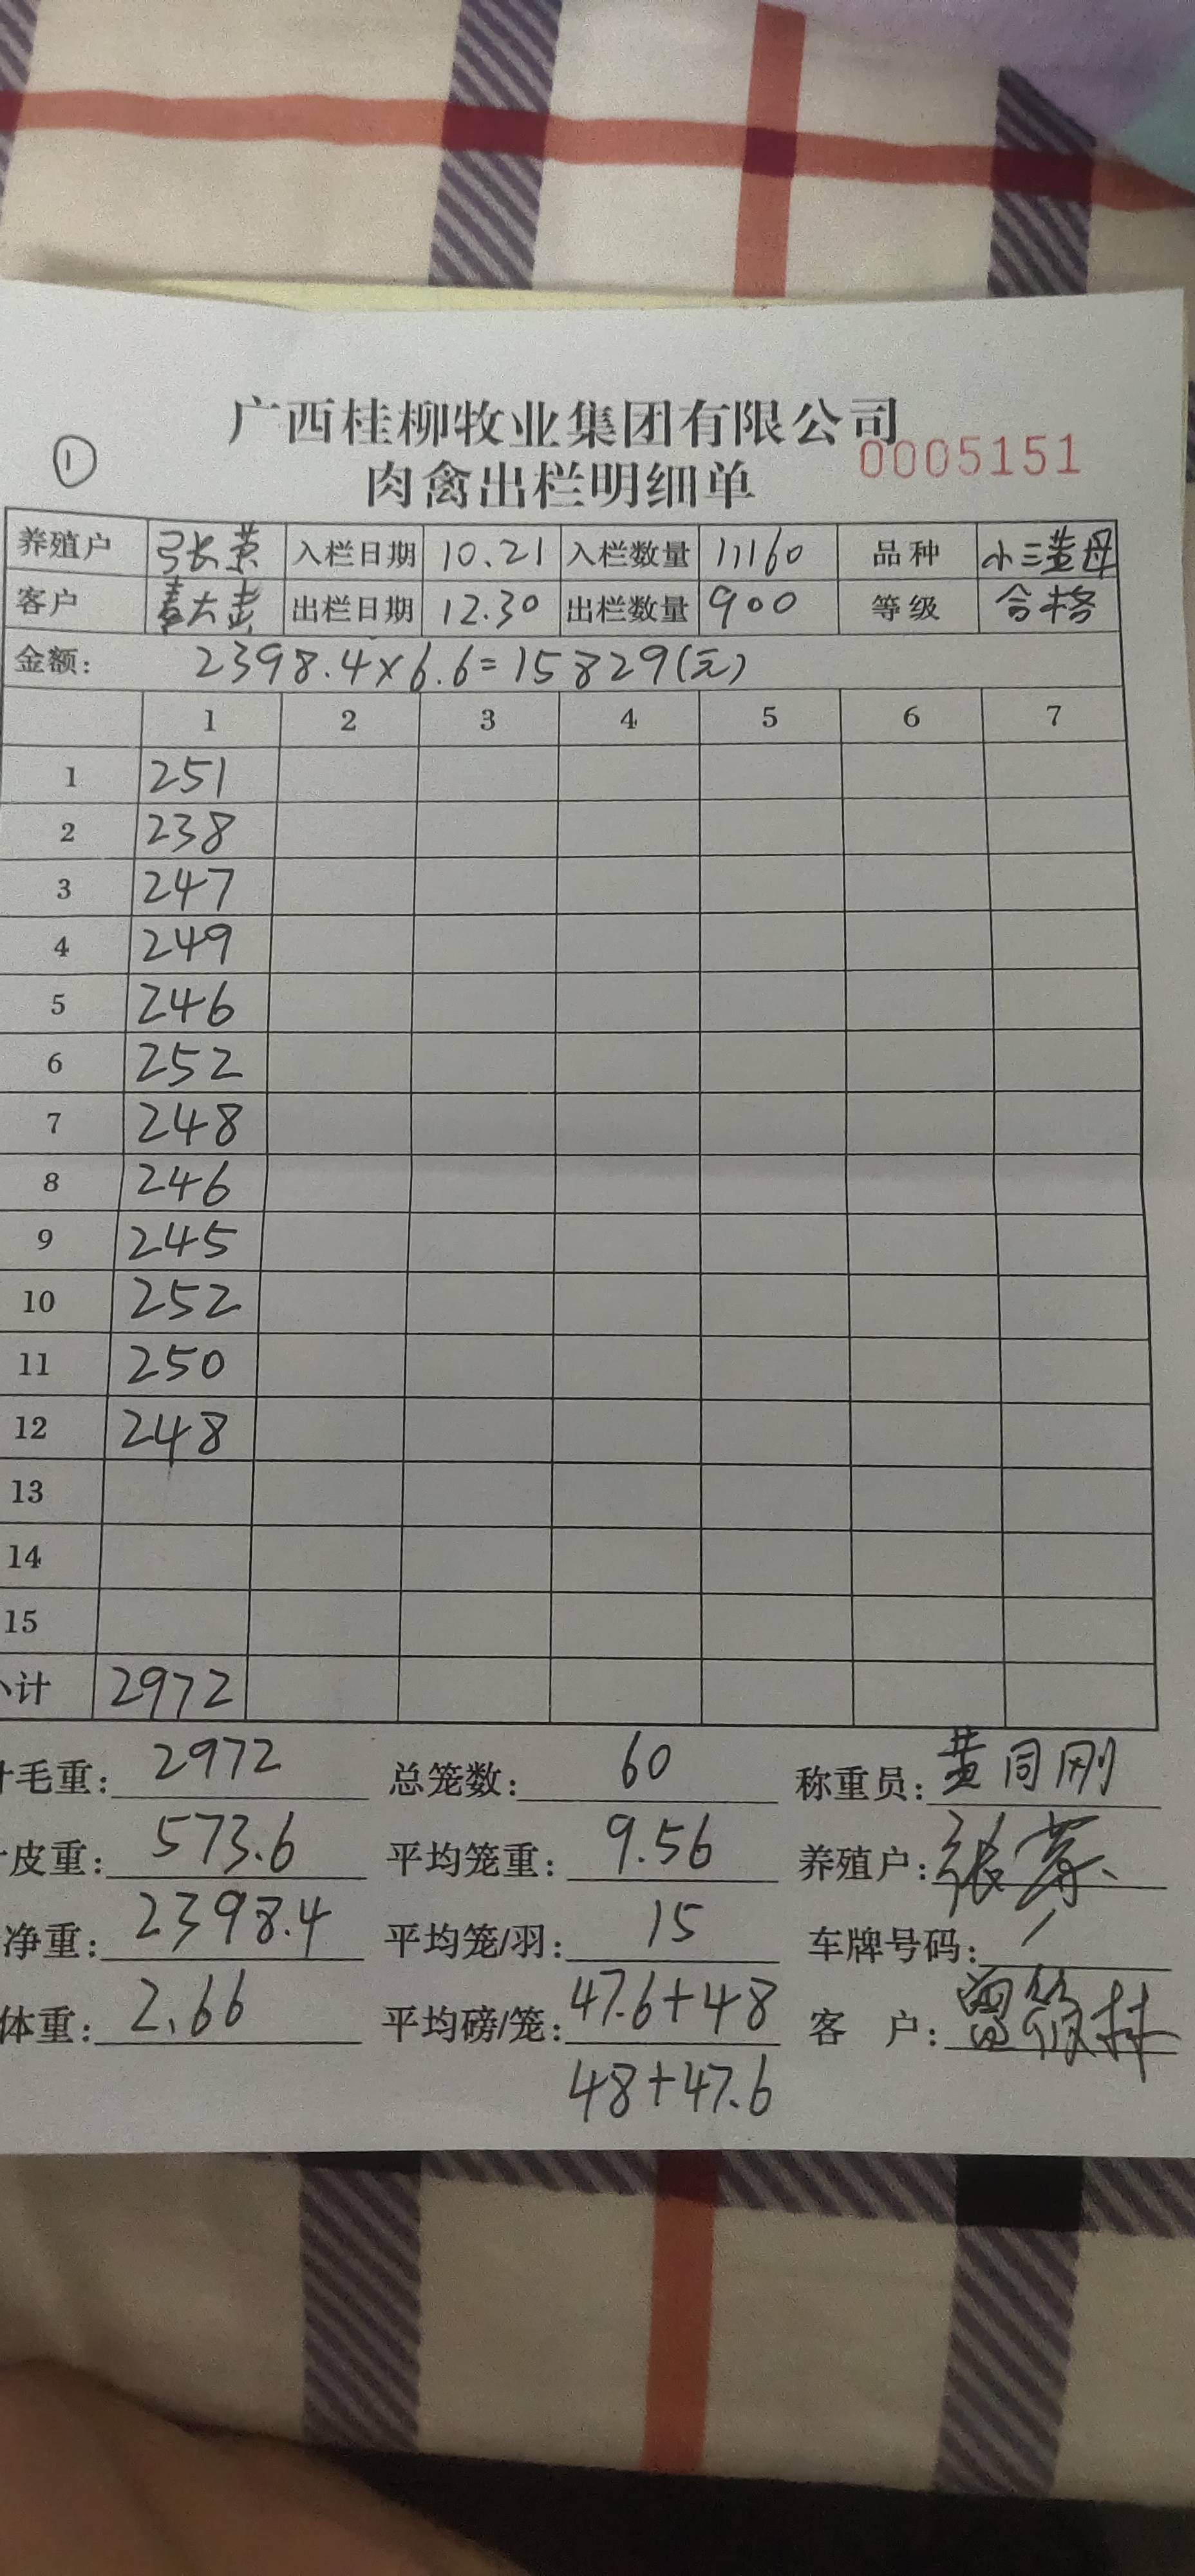 广西桂柳牧业集团有限公司
① 肉禽出栏明细单 0005151
养殖户 张荣 入栏日期 10.21 入栏数量 11160 品种 小三黄母
客户 出栏日期 12.30 出栏数量 900 等级 合格
金额: 2398.4×6.6=15829(元)
1 2 3 4 5 6 7
1 251
2 238
3 247
4 249
5 246
6 252
7 248
8 246
9 245
10 252
11 250
12 248
13
14
15
计 2972
毛重: 2972 总笼数: 60 称重员: 黄同刚
皮重: 573.6 平均笼重: 9.56 养殖户: 张荣
净重: 2398.4 平均笼/羽: 15 车牌号码: /
体重: 2.66 平均磅/笼: 47.6+48 客 户:
48+47.6